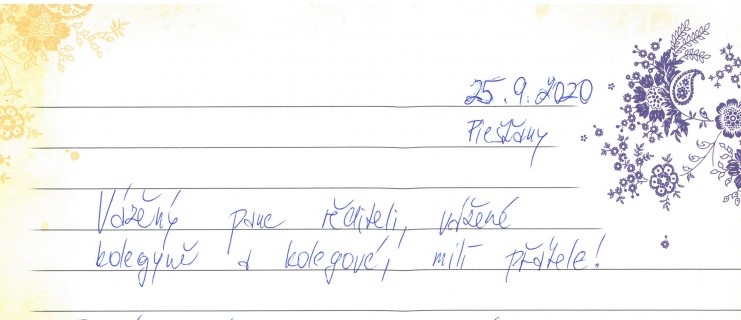 25.9.2020
Piešťany
Vážěný pane řěditeli, vážené
kolegyně a kolegové, milí přátele!